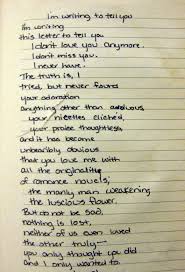 Im writing to tell you
Im writing
this letter to tell you
I dont love you anymore.
I dont miss you.
I never have.
The truth is, I
tried, but never found
your adoration
anything other than
your niceties cliched,
your praise thoughtless,
and it has become
unbearibly obvious
that you love me with
all the originality
of romance novels,
the manly man weakening
the luscious flower.
But do not be sad,
nothing is lost,
neither of us even loved
the other truly—
you only thought you did
and I only wanted to.